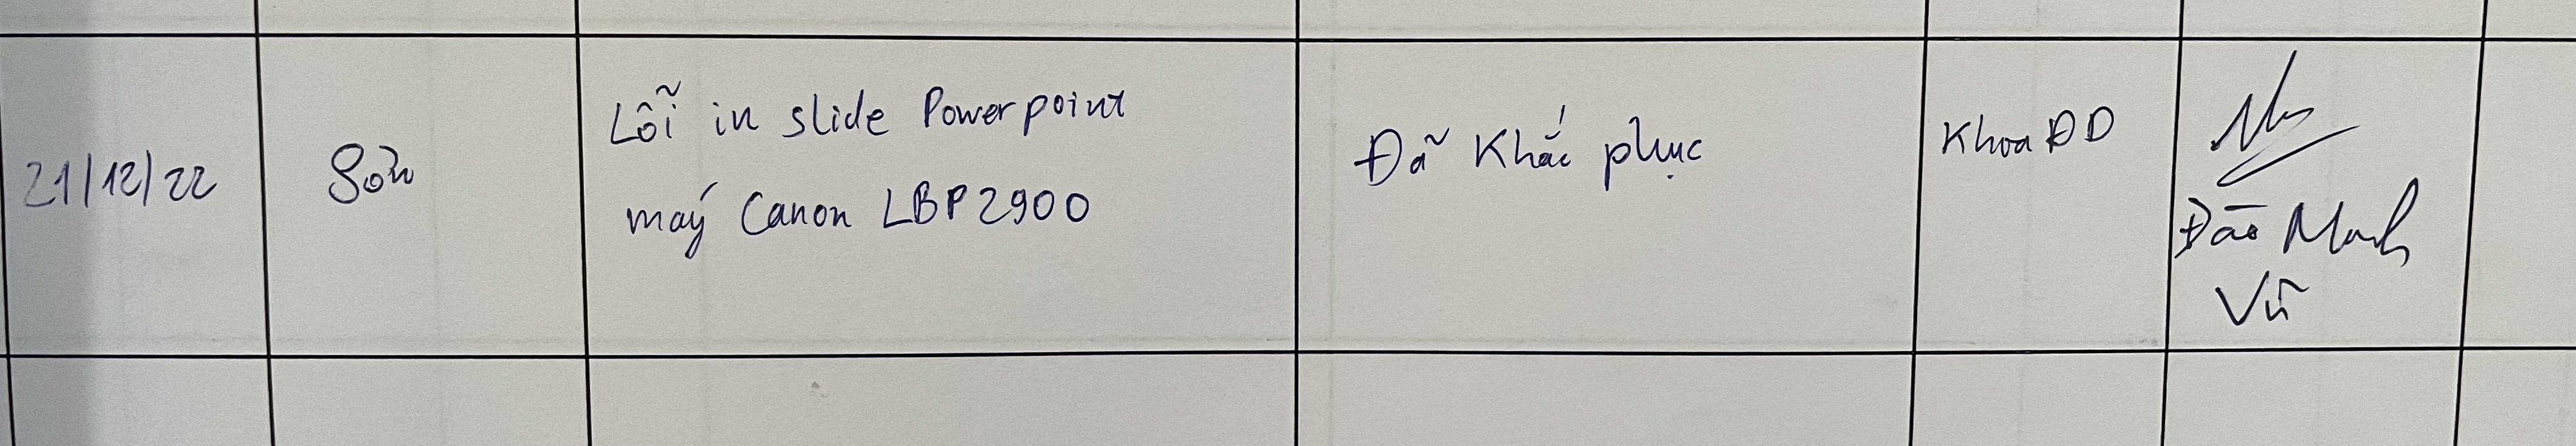 21/12/22
Sơn
Lỗi in slide Powerpoint
máy Canon LBP2900
Đã Khắc phục
Khoa ĐD
Đào Mạnh
Vũ